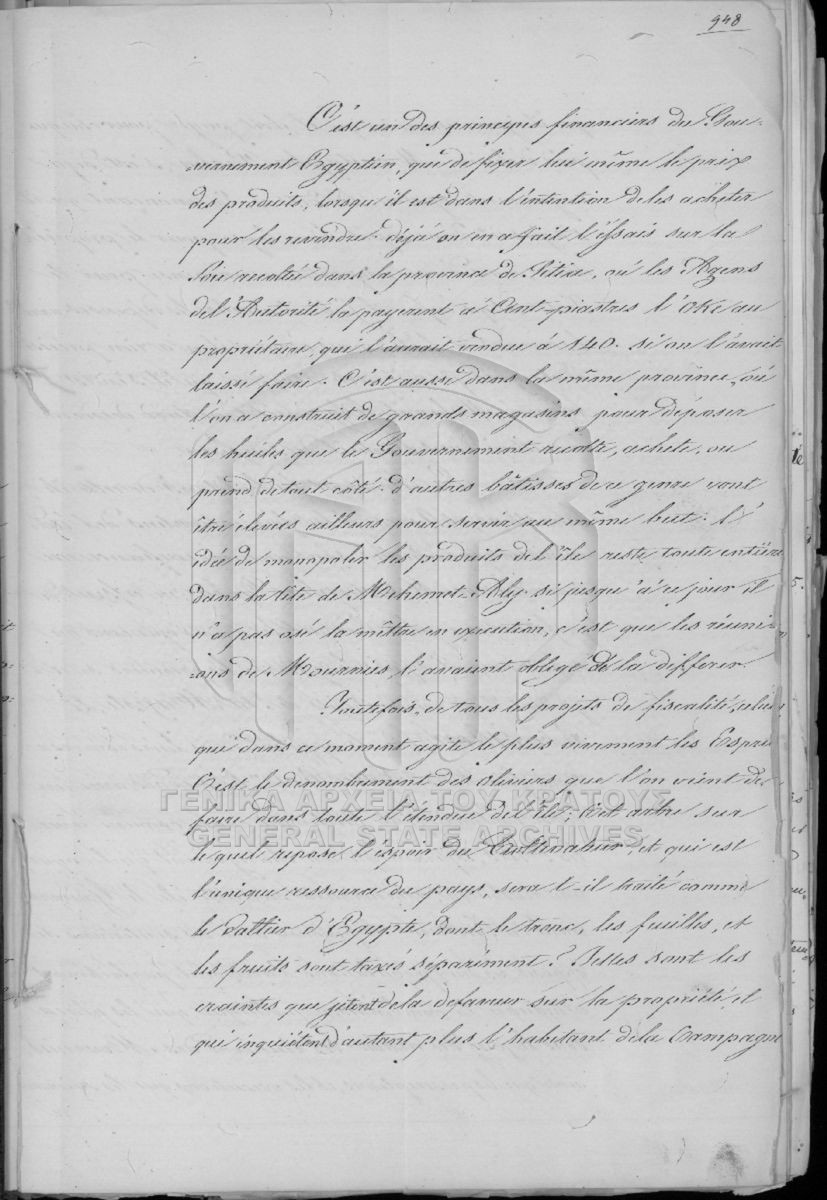 948
C'est un des principes financiers du Gou-
=vernement Egyptien, que de fixer lui même le prix
des produits, lorsqu'il est dans l'intention de les achèter
pour les revendre. déjà on en a fait l'éssais sur la
Soie recoltée dans la province de Sitia, où les Agens
de l'Autorité la payerent à Cent-piastres l'Oke au
propriétaire, qui l'aurait vendue à 140. si on l'avait
laissé faire. C'est aussi dans la même province, où
l'on a construit de grands magasins pour déposer
les huiles que le Gouvernement recolte, achete, ou
prend de tout côté. d'autres bâtisses de ce genre vont
être élevées ailleurs pour servir au même but. l'
idée de monopoler les produits de l'île reste toute entière
dans la tête de Mehemet-Aly. si jusqu'à ce jour il
n'a pas osé la mèttre en execution, c'est que les réuni-
=ons de Mournies, l'avaient obligé de la differer.
Toutefois, de tous les projets de fiscalité, celui
qui dans ce moment agite le plus vivement les Esprits
C'est le denombrement des oliviers que l'on vient de
faire dans toute l'étendue de l'île; Cet arbre sur
le quel repose l'espoir du Cultivateur, et qui est
l'unique ressource du pays, sera t-il traité comme
le Dattier d'Egypte, dont le tronc, les feuilles, et
les fruits sont taxés séparément? Telles sont les
craintes que jètent de la defaveur sur la propriété, et
qui inquiètent d'autant plus l'habitant de la Campagne
ΓΕΝΙΚΑ ΑΡΧΕΙΑ ΤΟΥ ΚΡΑΤΟΥΣ
GENERAL STATE ARCHIVES